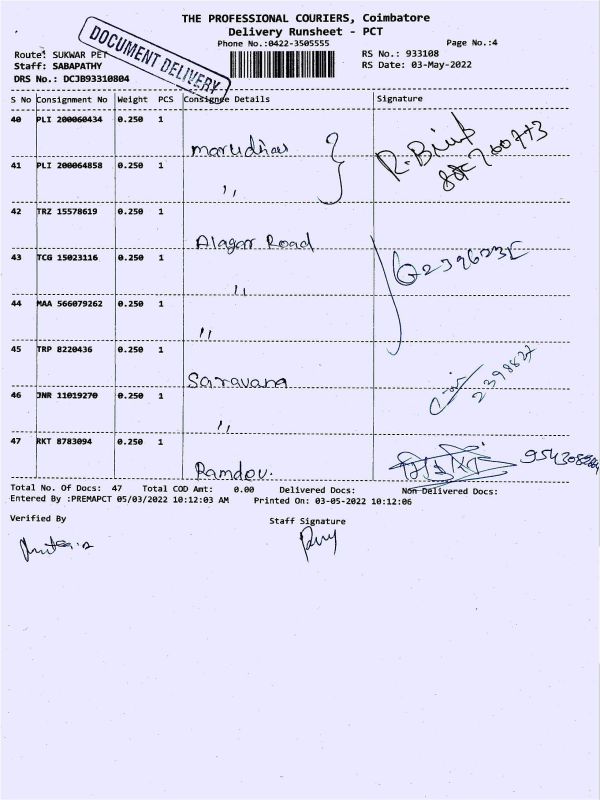 THE PROFESSIONAL COURIERS, Coimbatore
Delivery Runsheet - PCT
Phone No.:0422-3505555 Page No.:4
Route: SUKWAR PET RS No.: 933108
Staff: SABAPATHY RS Date: 03-May-2022
DRS No.: DCJB93310804
DOCUMENT DELIVERY
S No Consignment No Weight PCS Consignee Details Signature
40 PLI 200060434 0.250 1
41 PLI 200064858 0.250 1
,,
42 TRZ 15578619 0.250 1
Alagar Road
43 TCG 15023116 0.250 1
,,
44 MAA 566079262 0.250 1
,,
45 TRP 8220436 0.250 1
Saravana
46 JNR 11019270 0.250 1
2398827
,,
47 RKT 8783094 0.250 1
Ramdev.
Total No. Of Docs: 47 Total COD Amt: 0.00 Delivered Docs: Non Delivered Docs:
Entered By :PREMAPCT 05/03/2022 10:12:03 AM Printed On: 03-05-2022 10:12:06
Verified By Staff Signature